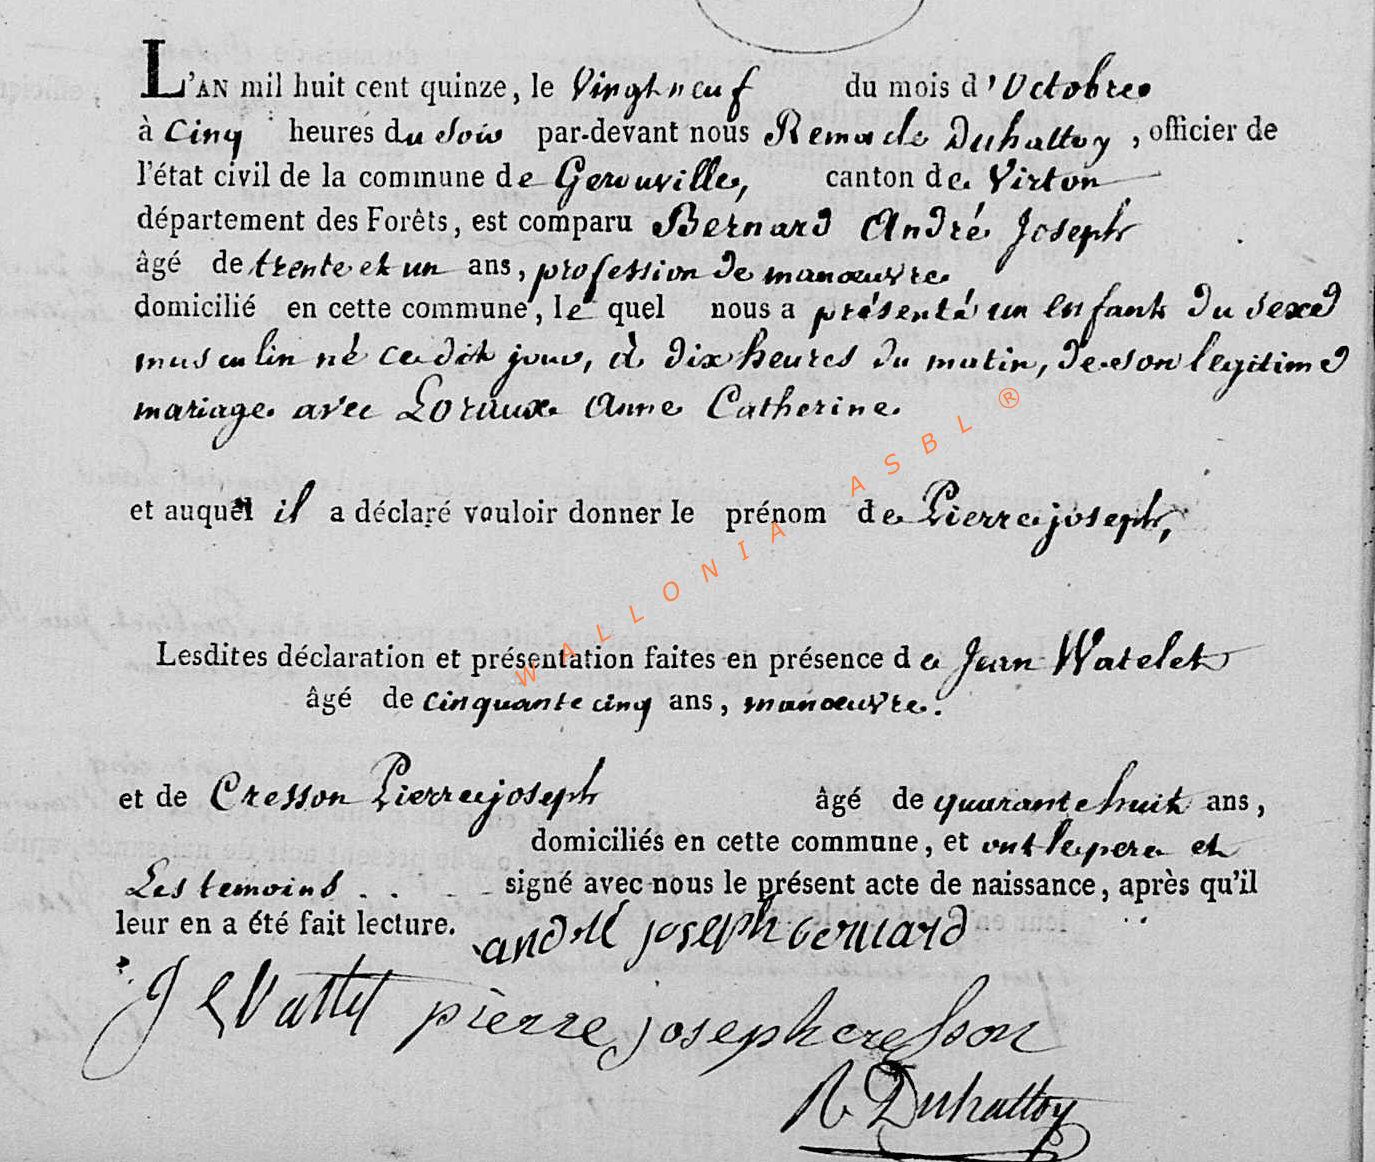 L'AN mil huit cent quinze, le Vingt neuf du mois d'Octobre
à Cinq heures du Soir par-devant nous Remacle Duhattoy, officier de
l'état civil de la commune de Gerouville, canton de Virton
département des Forêts, est comparu Bernard André Joseph
âgé de trente et un ans, profession de manœuvre
domicilié en cette commune, le quel nous a présenté un enfant du sexe
masculin né ce dit jour, à dix heures du matin, de son legitime
mariage avec Loraux Anne Catherine.
et auquel il a déclaré vouloir donner le prénom de Pierre joseph,
WALLONIA ASBL ®
Lesdites déclaration et présentation faites en présence de Jean Watelet
âgé de cinquante cinq ans, manœuvre.
et de Cresson Pierre joseph âgé de quarante huit ans,
domiciliés en cette commune, et ont le pere et
Les temoins signé avec nous le présent acte de naissance, après qu'il
leur en a été fait lecture. andré joseph bernard
J Wattlet pierre joseph cresson
R. Duhattoy